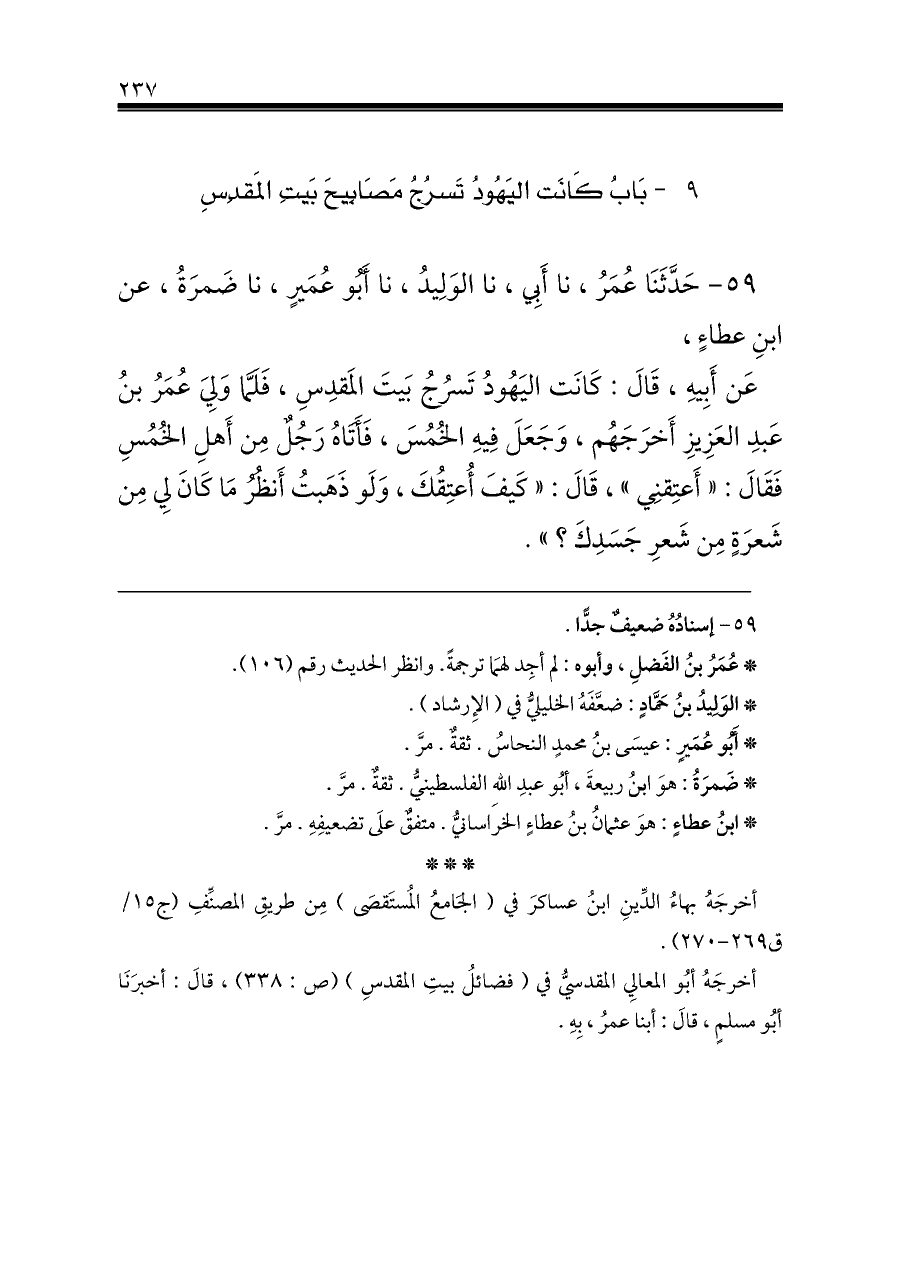 ٢٣٧
٩ - بَابُ كَانَت اليَهُودُ تَسرُجُ مَصَابِيحَ بَيتِ المَقدِسِ
٥٩- حَدَّثَنَا عُمَرُ ، نا أَبِي ، نا الوَلِيدُ ، نا أَبُو عُمَيرٍ ، نا ضَمرَةُ ، عن
ابنِ عطاءٍ ،
عَن أَبِيهِ ، قَالَ : كَانَت اليَهُودُ تَسرُجُ بَيتَ المَقدِسِ ، فَلَمَّا وَلِيَ عُمَرُ بنُ
عَبدِ العَزِيزِ أَخرَجَهُم ، وَجَعَلَ فِيهِ الخُمُسَ ، فَأَتَاهُ رَجُلٌ مِن أَهلِ الخُمُسِ
فَقَالَ : « أَعتِقنِي » ، قَالَ : « كَيفَ أُعتِقُكَ ، وَلَو ذَهَبتُ أَنظُرُ مَا كَانَ لِي مِن
شَعرَةٍ مِن شَعرِ جَسَدِكَ ؟ » .
٥٩- إسنادُهُ ضعيفٌ جدًّا .
* عُمَرُ بنُ الفَضلِ ، وأبوه : لم أجِد لهمَا ترجمةً. وانظر الحديث رقم (١٠٦).
* الوَلِيدُ بنُ حَمَّادٍ : ضعَّفَهُ الخليليُّ في ( الإرشاد ) .
* أَبُو عُمَيرٍ : عيسَى بنُ محمدٍ النحاسُ . ثقةٌ . مرَّ .
* ضَمرَةُ : هوَ ابنُ ربيعةَ ، أبُو عبدِ اللهِ الفلسطينيُّ . ثقةٌ . مرَّ .
* ابنُ عطاءٍ : هوَ عثمانُ بنُ عطاءٍ الخرَاسانيُّ . متفقٌ علَى تضعيفِهِ . مرَّ .
* * *
أخرجَهُ بهاءُ الدِّينِ ابنُ عساكرَ في ( الجَامعُ المُستَقصَى ) مِن طريقِ المصنِّفِ (ج١٥/
ق٢٦٩-٢٧٠) .
أخرجَهُ أبُو المعالِي المقدسيُّ في ( فضائلُ بيتِ المقدسِ ) (ص : ٣٣٨) ، قالَ : أخبرَنَا
أبُو مسلمٍ ، قالَ : أبنا عمرُ ، بِهِ .